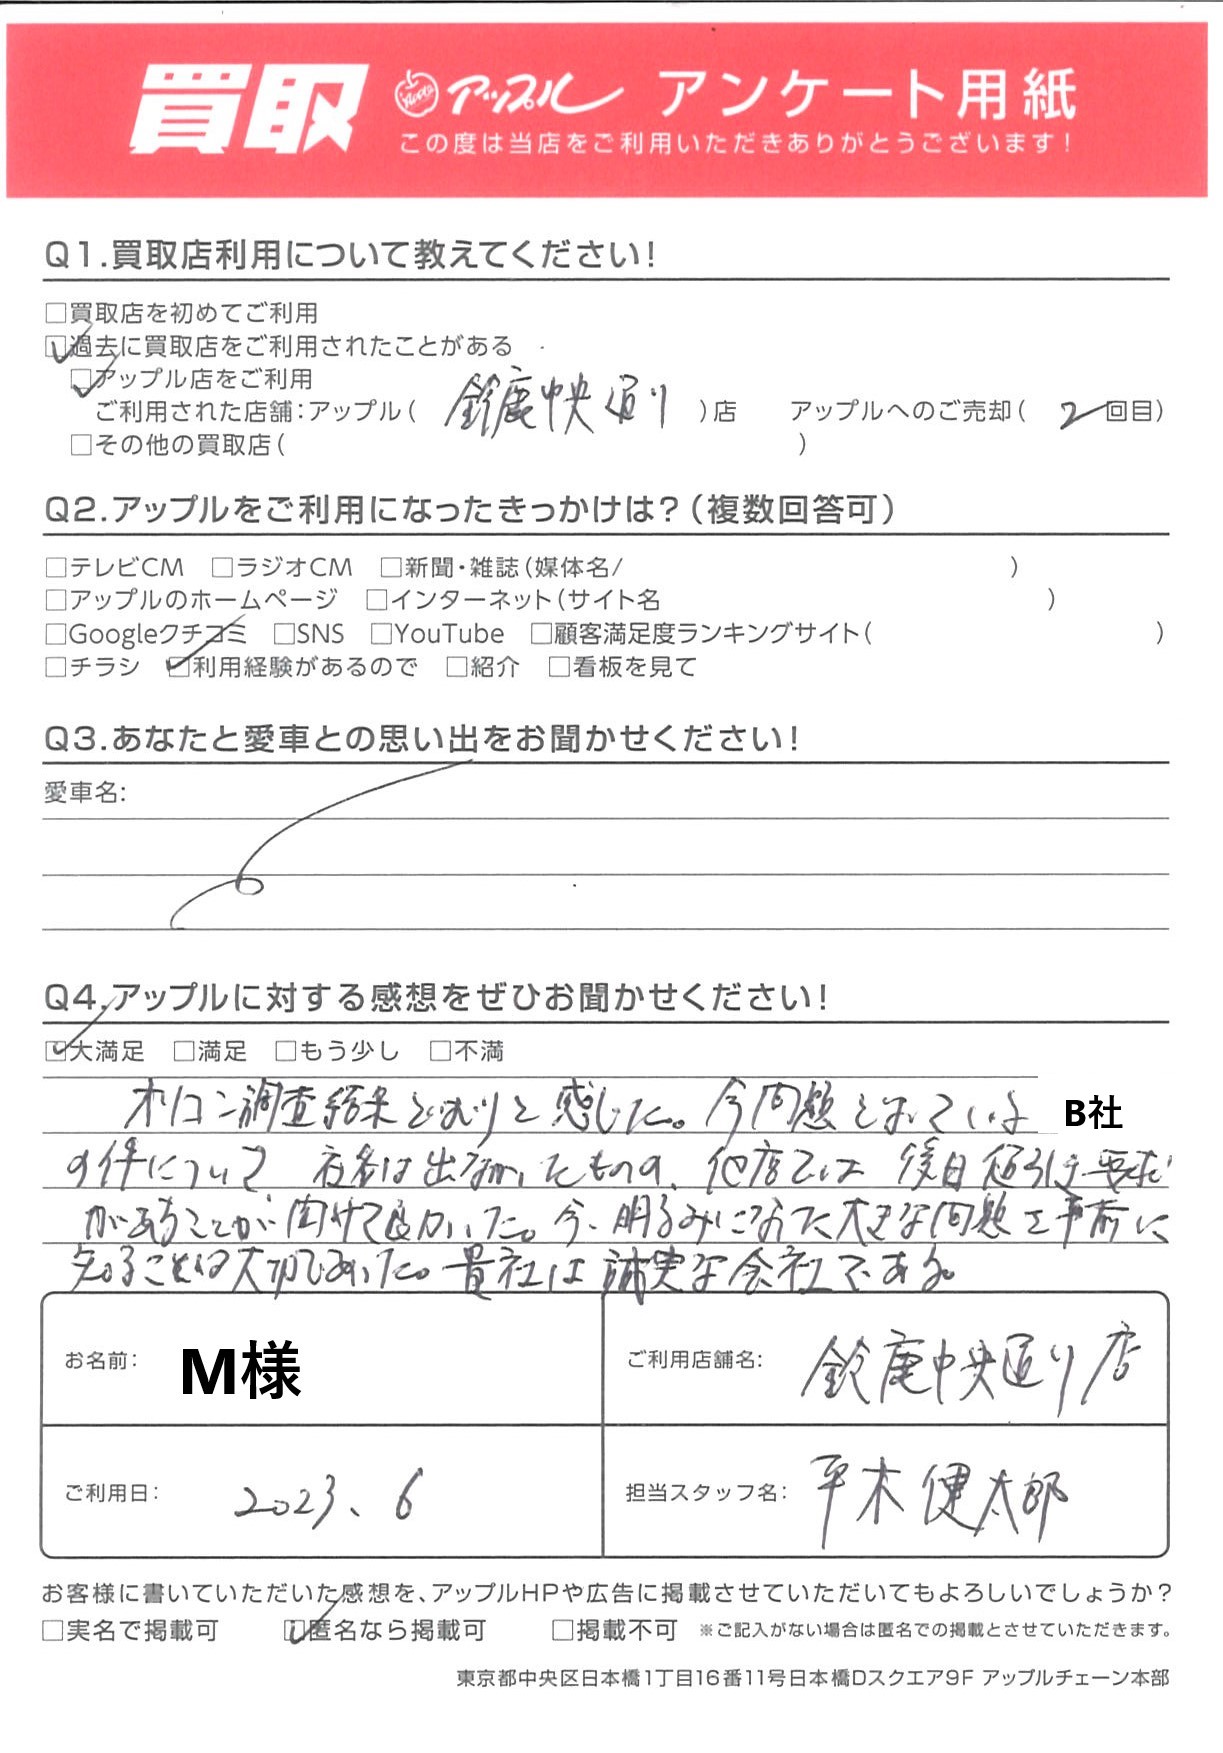 買取 Apple アップル アンケート用紙
この度は当店をご利用いただきありがとうございます!
Q1.買取店利用について教えてください!
□買取店を初めてご利用
☑過去に買取店をご利用されたことがある
☑アップル店をご利用
ご利用された店舗:アップル( 鈴鹿中央通り )店 アップルへのご売却( 2回目)
□その他の買取店( )
Q2.アップルをご利用になったきっかけは?(複数回答可)
□テレビCM □ラジオCM □新聞・雑誌(媒体名/ )
□アップルのホームページ □インターネット(サイト名 )
□Googleクチコミ □SNS □YouTube □顧客満足度ランキングサイト( )
□チラシ ☑利用経験があるので □紹介 □看板を見て
Q3.あなたと愛車との思い出をお聞かせください!
愛車名:
Q4.アップルに対する感想をぜひお聞かせください!
☑大満足 □満足 □もう少し □不満
オリコン調査結果どおりと感じた。今問題となっている B社
の件について 社名は出なかったものの、他店では 後日値引き要求
があることが聞けて良かった。今、明るみになった大きな問題を事前に
知ることは大切であった。貴社は誠実な会社である。
お名前: M様 ご利用店舗名: 鈴鹿中央通り店
ご利用日: 2023、6 担当スタッフ名: 平木健太郎
お客様に書いていただいた感想を、アップルHPや広告に掲載させていただいてもよろしいでしょうか?
□実名で掲載可 ☑匿名なら掲載可 □掲載不可 ※ご記入がない場合は匿名での掲載とさせていただきます。
東京都中央区日本橋1丁目16番11号日本橋Dスクエア9F アップルチェーン本部